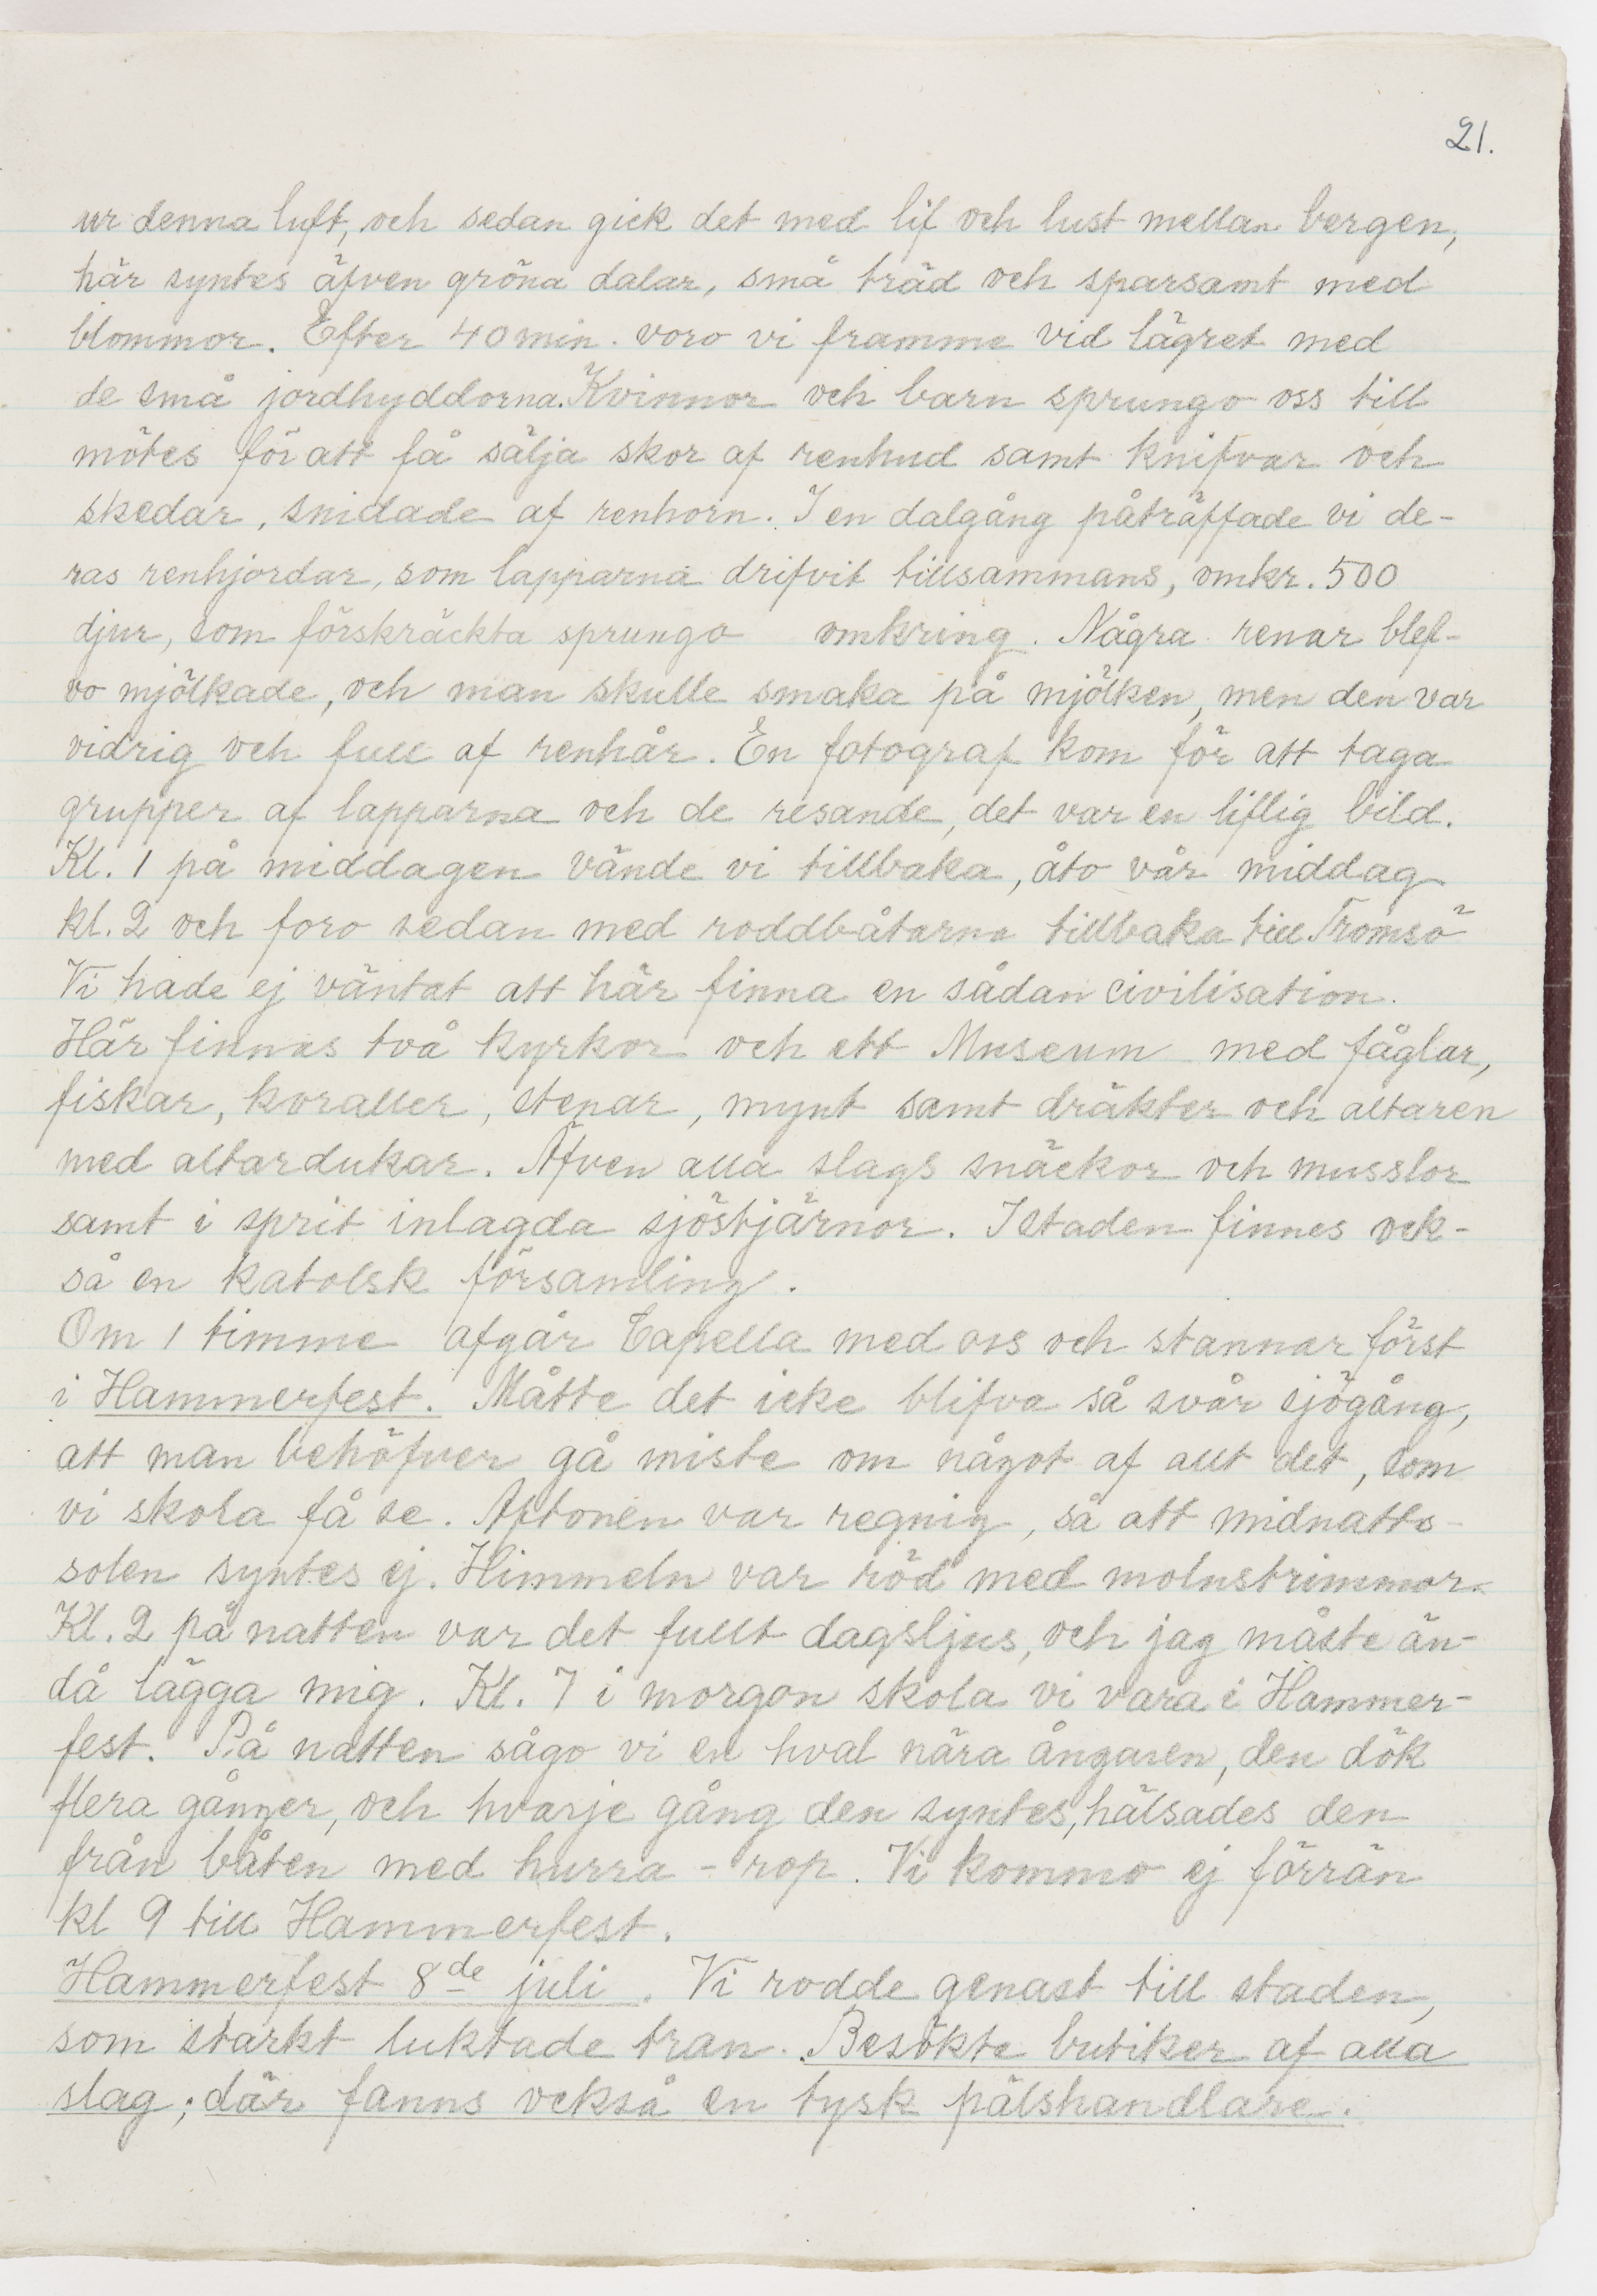 21.
ur denna luft, och sedan gick det med lif och lust mellan bergen,
här syntes äfven gröna dalar, små träd och sparsamt med
blommor. Efter 40 min. voro vi framme vid lägret med
de små jordhyddorna. Kvinnor och barn sprungo oss till
mötes för att få sälja skor af renhud samt knifvar och
skedar, snidade af renhorn. I en dalgång påträffade vi de-
ras renhjordar, som lapparna drifvit tillsammans, omkr. 500
djur, som förskräckta sprungo omkring. Några renar blef-
vo mjölkade, och man skulle smaka på mjölken, men den var
vidrig och full af renhår. En fotograf kom för att taga
grupper af lapparna och de resande, det var en liflig bild.
Kl. 1 på middagen vände vi tillbaka, åto vår middag
kl. 2 och foro sedan med roddbåtarna tillbaka till Tromsö
Vi hade ej väntat att här finna en sådan civilisation.
Här finnas två kyrkor och ett Museum med fåglar,
fiskar, koraller, stenar, mynt samt dräkter och altaren
med altardukar. Äfven alla slags snäckor och musslor
samt i sprit inlagda sjöstjärnor. I staden finnes ock-
så en katolsk församling.
Om 1 timme afgår Capella med oss och stannar först
i Hammerfest. Måtte det icke blifva så svår sjögång,
att man behöfver gå miste om något af allt det, som
vi skola få se. Aftonen var regnig, så att midnatts-
solen syntes ej. Himmeln var röd med molnstrimmor.
Kl. 2 på natten var det fullt dagsljus, och jag måste än-
då lägga mig. Kl. 7 i morgon skola vi vara i Hammer-
fest. På natten sågo vi en hval nära ångaren, den dök
flera gånger, och hvarje gång den syntes, hälsades den
från båten med hurra - rop. Vi kommo ej förrän
kl 9 till Hammerfest.
Hammerfest 8de juli. Vi rodde genast till staden,
som starkt luktade tran. Besökte butiker af alla
slag; där fanns också en tysk pälshandlare.